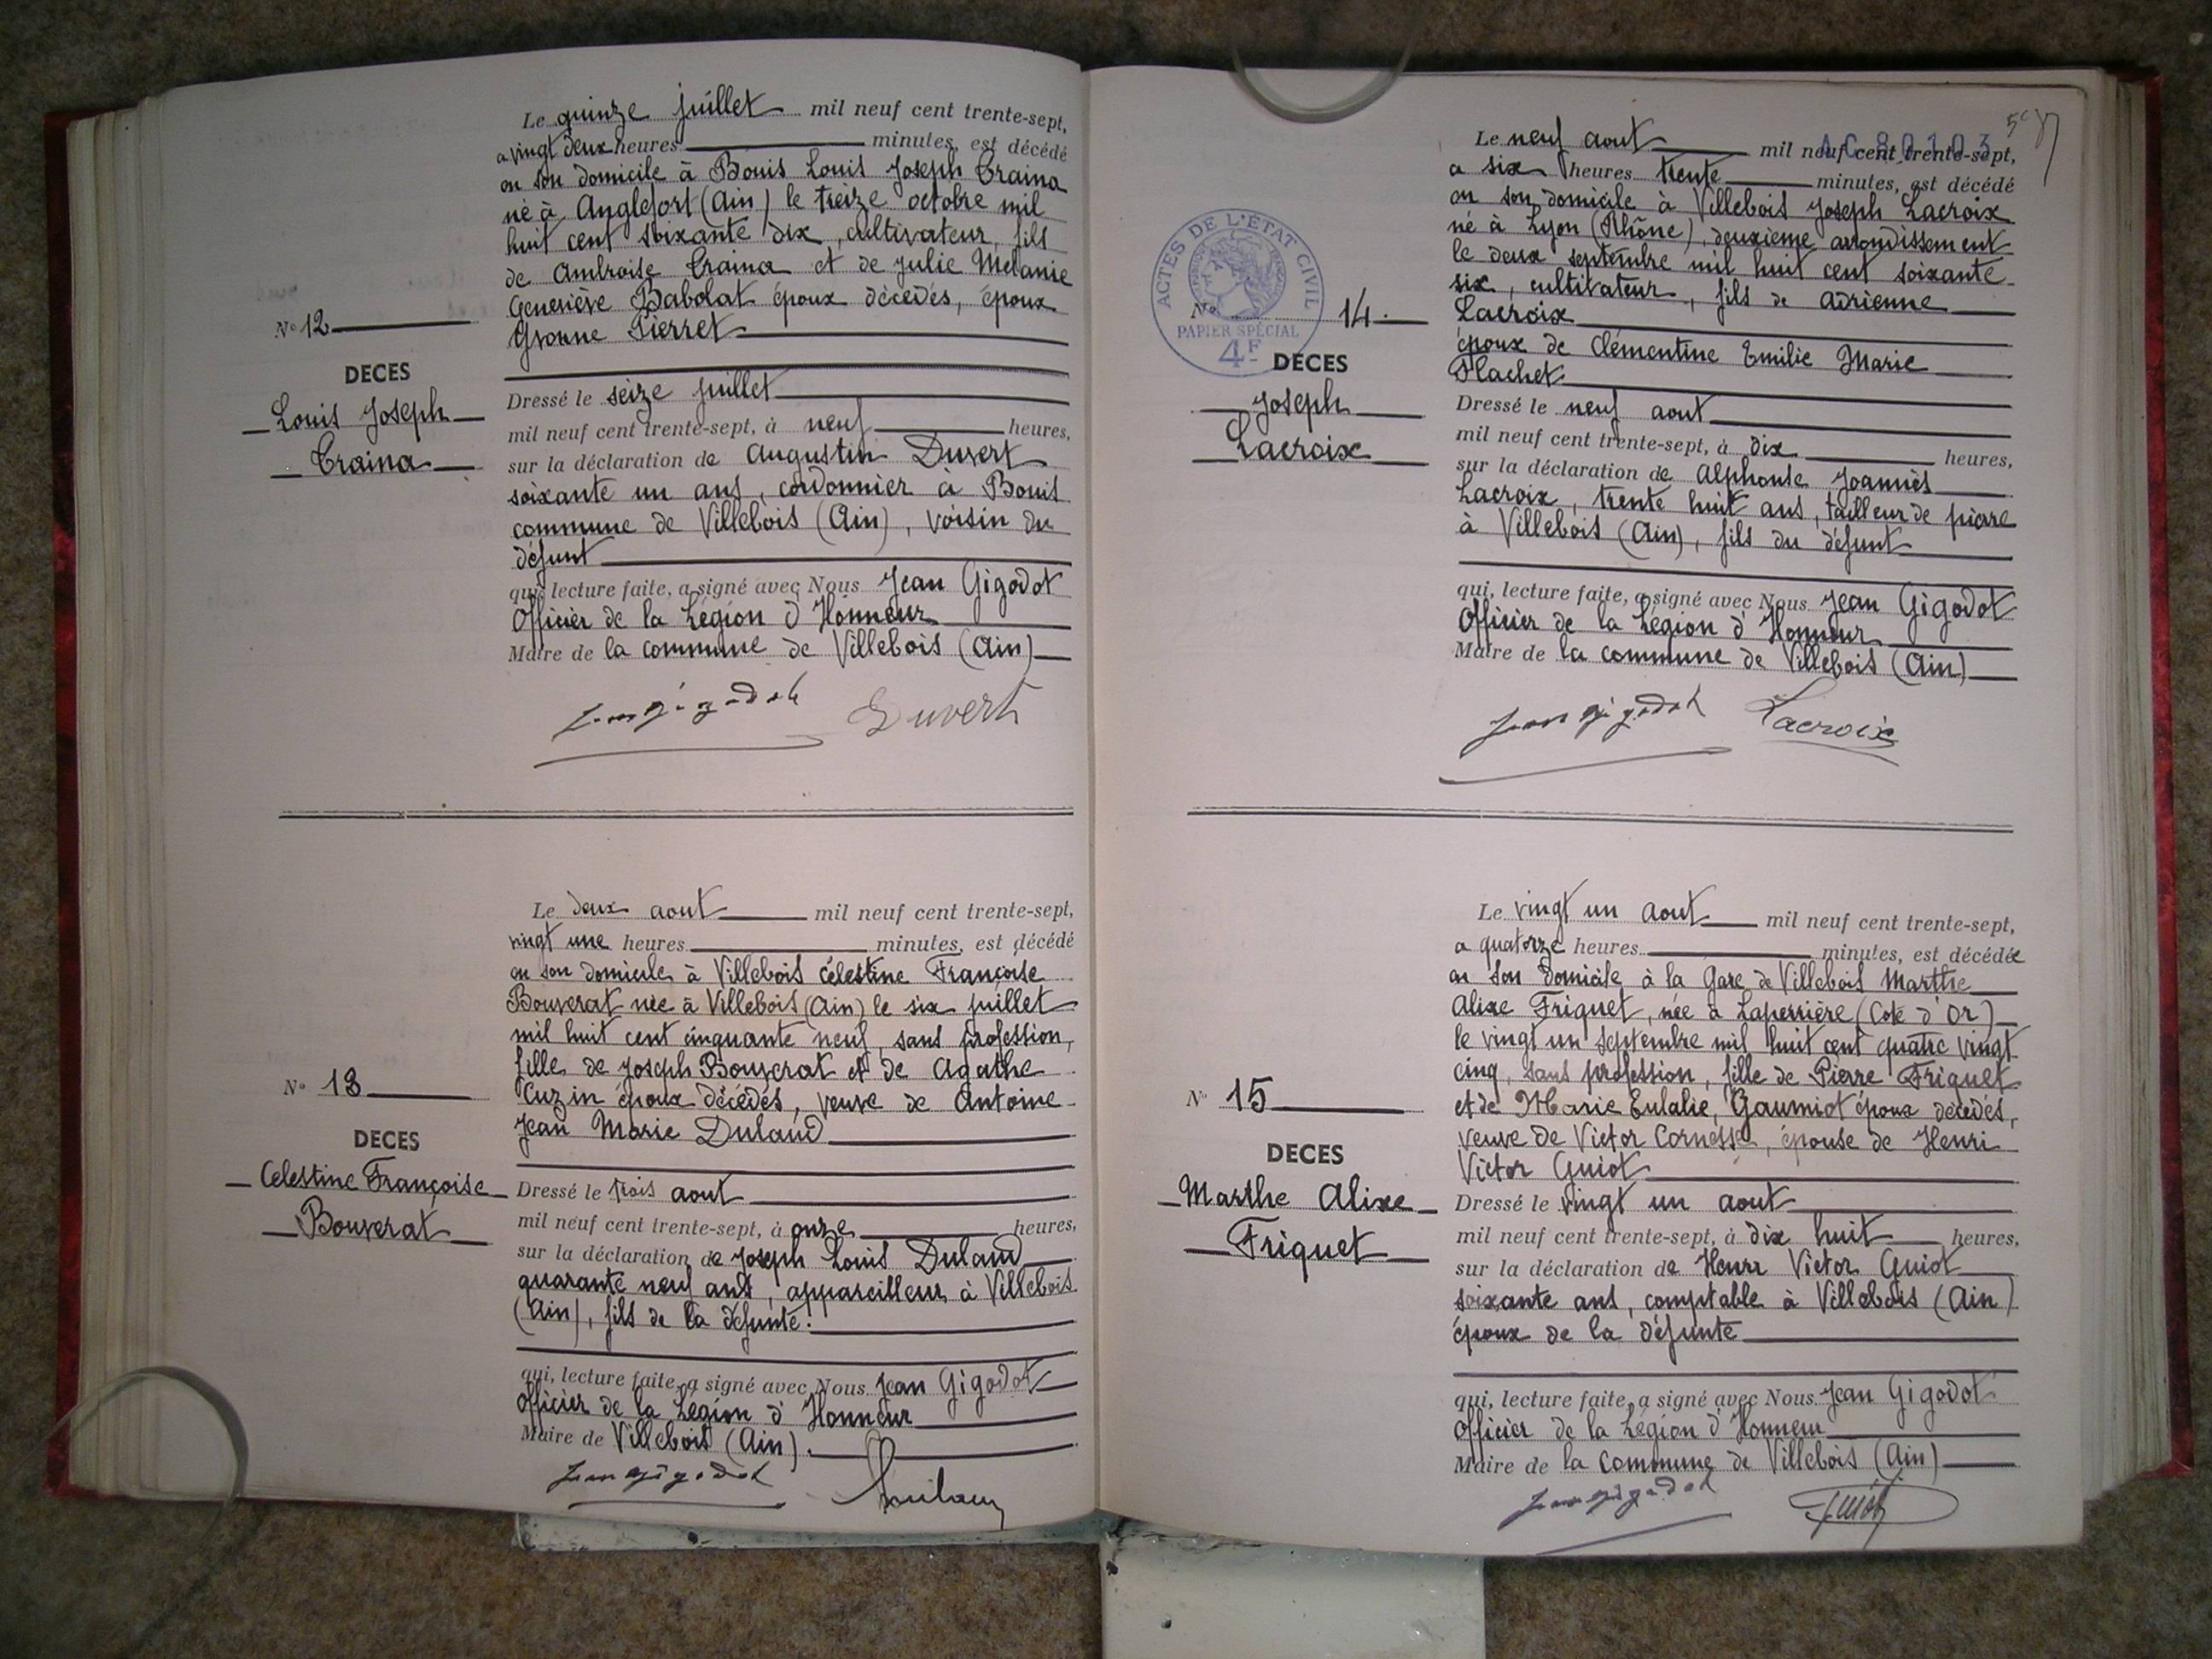 Le quinze juillet mil neuf cent trente-sept,
a vingt deux heures minutes, est décédé
en son domicile à Bouis Louis Joseph Craina
né à Anglefort (Ain) le treize octobre mil
huit cent soixante dix, cultivateur, fils
de Ambroise Craina et de Julie Mélanie
Geneviève Babolat époux décédés, époux
Yvonne Pierret
N° 12
DECES
Louis Joseph
Craina
Dressé le seize juillet
mil neuf cent trente-sept, à neuf heures,
sur la déclaration de Augustin Duvert
soixante un ans, cordonnier à Bouis
commune de Villebois (Ain), voisin du
défunt
qui, lecture faite, a signé avec Nous Jean Gigodot
Officier de la Légion d'Honneur
Maire de la commune de Villebois (Ain)
Jean Gigodot Duvert
Le deux aout mil neuf cent trente-sept,
vingt une heures minutes, est décédé
en son domicile à Villebois Célestine Françoise
Bouverat née à Villebois (Ain) le six juillet
mil huit cent cinquante neuf, sans profession,
fille de Joseph Bouverat et de Agathe
Cuzin époux décédés, veuve de Antoine
Jean Marie Dulaud
N° 13
DECES
Celestine Françoise
Bouverat
Dressé le trois aout
mil neuf cent trente-sept, à onze heures,
sur la déclaration de Joseph Louis Dulaud
quarante neuf ans, appareilleur à Villebois
(Ain), fils de la défunte.
qui, lecture faite, a signé avec Nous Jean Gigodot
Officier de la Légion d'Honneur
Maire de Villebois (Ain).
Jean Gigodot
AC 80103
Le neuf aout mil neuf cent trente-sept,
a six heures trente minutes, est décédé
en son domicile à Villebois Joseph Lacroix
né à Lyon (Rhône), deuxième arrondissement
le deux septembre mil huit cent soixante
six, cultivateur, fils de Adrienne
Lacroix
époux de Clémentine Emilie Marie
Flachet.
ACTES DE L'ÉTAT CIVIL
PAPIER SPÉCIAL
4F
N° 14.
DECES
Joseph
Lacroix
Dressé le neuf aout
mil neuf cent trente-sept, à dix heures,
sur la déclaration de Alphonse Joannès
Lacroix, trente huit ans, tailleur de pierre
à Villebois (Ain), fils du défunt
qui, lecture faite, a signé avec Nous Jean Gigodot
Officier de la Légion d'Honneur
Maire de la commune de Villebois (Ain)
Jean Gigodot Lacroix
Le vingt un aout mil neuf cent trente-sept,
a quatorze heures minutes, est décédée
en son domicile à la Gare de Villebois Marthe
Alixe Friquet, née à Laperrière (Côte d'Or)
le vingt un septembre mil huit cent quatre vingt
cinq, sans profession, fille de Pierre Friquet
et de Marie Eulalie, Gaumiot époux décédés,
veuve de Victor Cornesse, épouse de Henri
Victor Guiot
N° 15
DECES
Marthe Alixe
Friquet
Dressé le vingt un aout
mil neuf cent trente-sept, à dix huit heures,
sur la déclaration de Henri Victor Guiot
soixante ans, comptable à Villebois (Ain)
époux de la défunte
qui, lecture faite, a signé avec Nous Jean Gigodot
Officier de la Légion d'Honneur
Maire de la Commune de Villebois (Ain)
Jean Gigodot Guiot